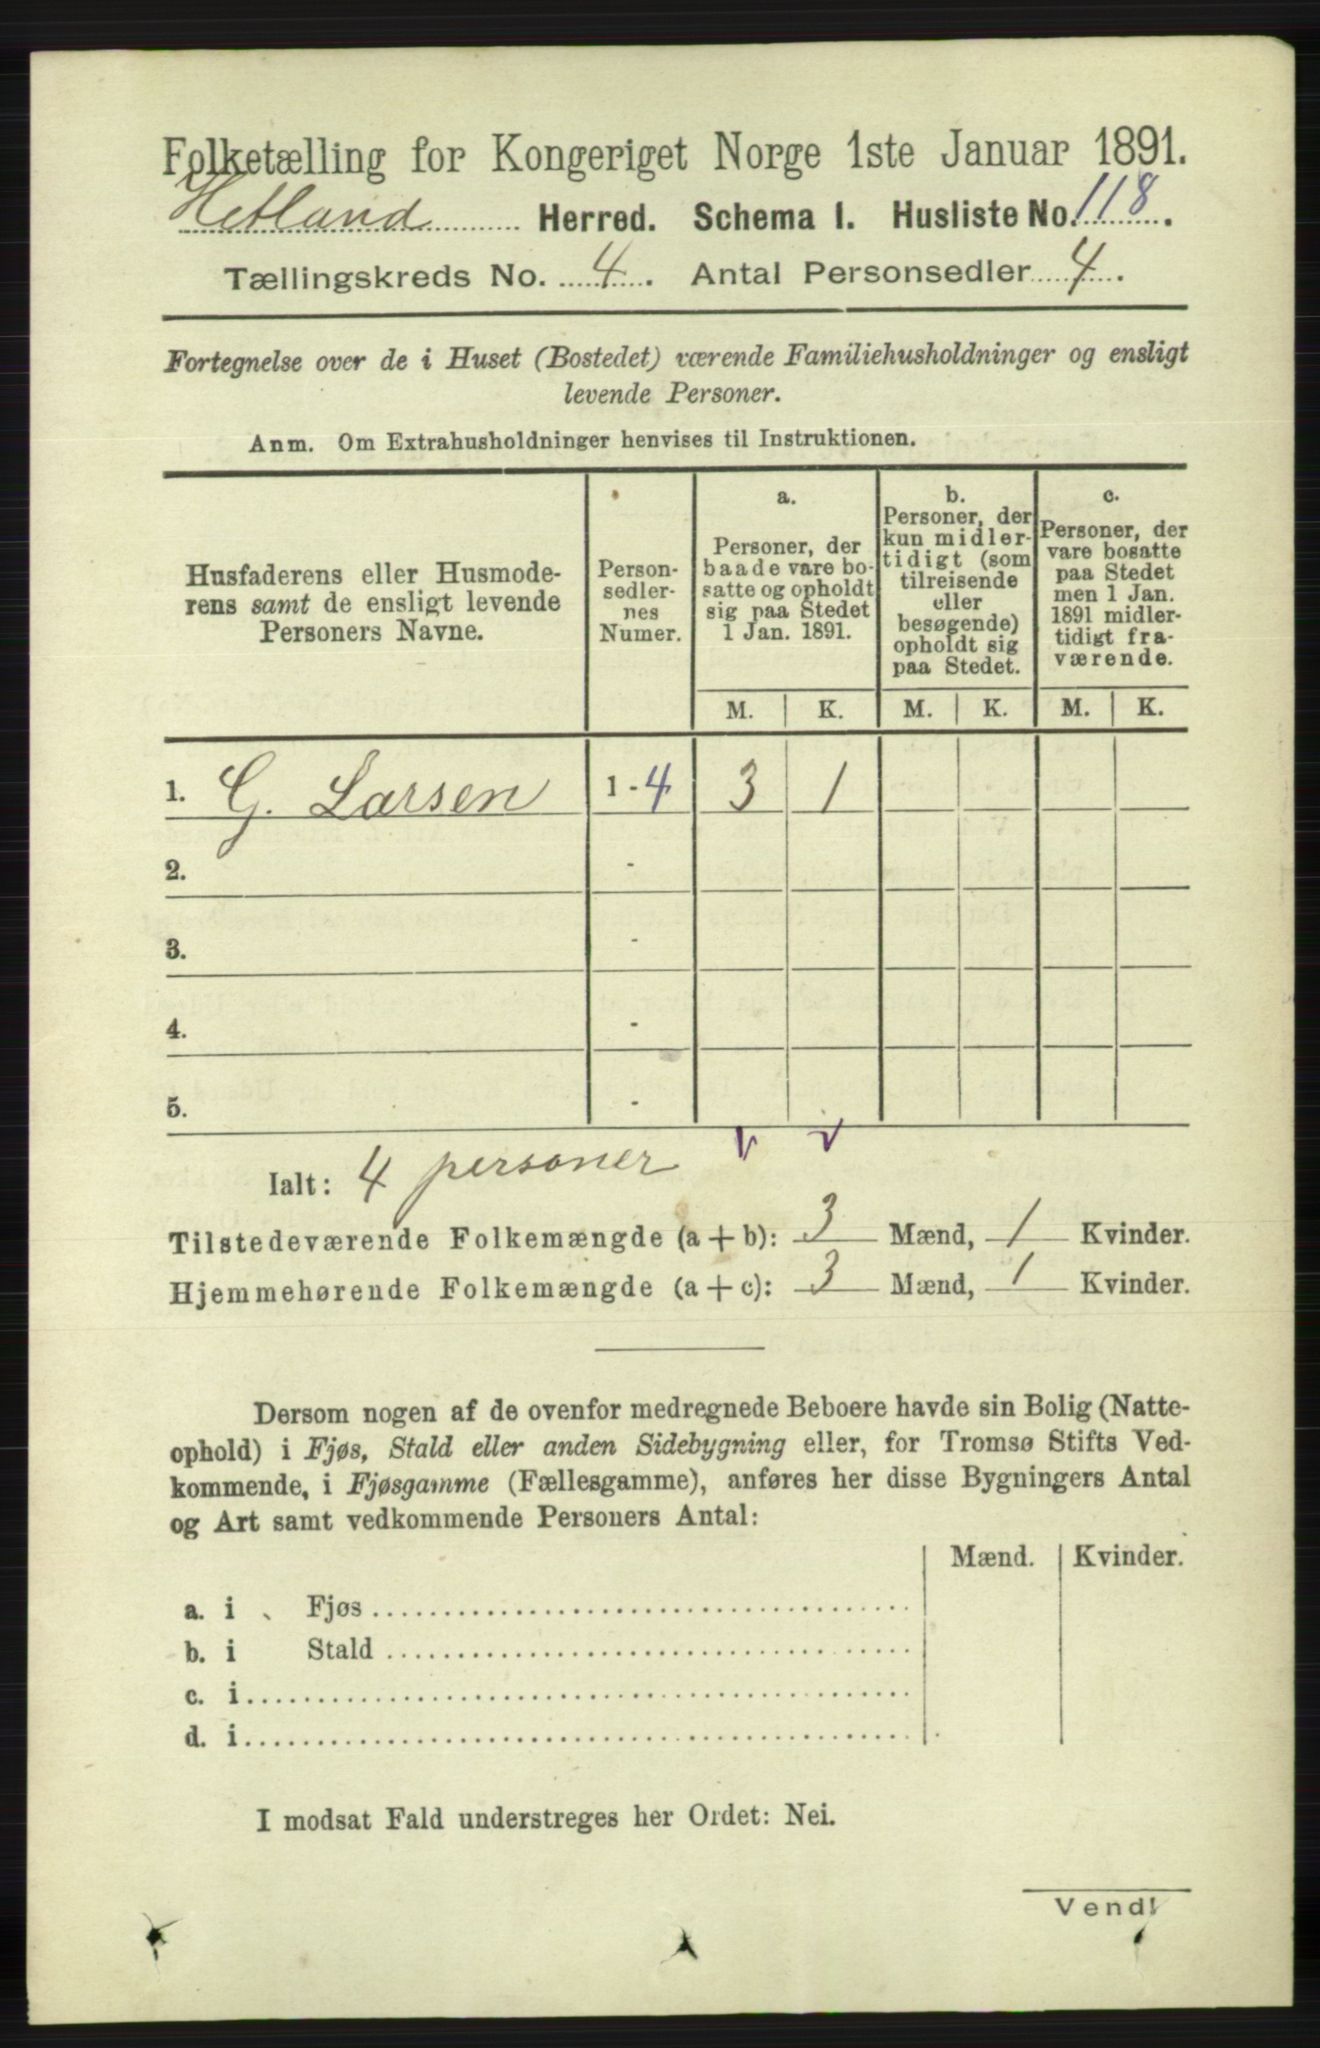 Folketælling for Kongeriget Norge 1ste Januar 1891.
Hetland Herred. Schema 1. Husliste No. 118.
Tællingskreds No. 4. Antal Personsedler 4.
Fortegnelse over de i Huset (Bostedet) værende Familiehusholdninger og ensligt
levende Personer.
Anm. Om Extrahusholdninger henvises til Instruktionen.
Husfaderens eller Husmode-
rens samt de ensligt levende
Personers Navne.
Person-
sedler-
nes
Numer.
a.
Personer, der
baade vare bo-
satte og opholdt
sig paa Stedet
1 Jan. 1891.
b.
Personer, der
kun midler-
tidigt (som
tilreisende
eller
besøgende)
opholdt sig
paa Stedet.
c.
Personer, der
vare bosatte
paa Stedet
men 1 Jan.
1891 midler-
tidigt fra-
værende.
M. K. M. K. M. K.
1. G. Larsen 1 - 4 3 1
2. -
3. -
4. -
5. -
Ialt: 4 personer
Tilstedeværende Folkemængde (a + b): 3 Mænd, 1 Kvinder.
Hjemmehørende Folkemængde (a + c): 3 Mænd, 1 Kvinder.
Dersom nogen af de ovenfor medregnede Beboere havde sin Bolig (Natte-
ophold) i Fjøs, Stald eller anden Sidebygning eller, for Tromsø Stifts Ved-
kommende, i Fjøsgamme (Fællesgamme), anføres her disse Bygningers Antal
og Art samt vedkommende Personers Antal:
Mænd. Kvinder.
a. i Fjøs
b. i Stald
c. i
d. i
I modsat Fald understreges her Ordet: Nei.
Vend!